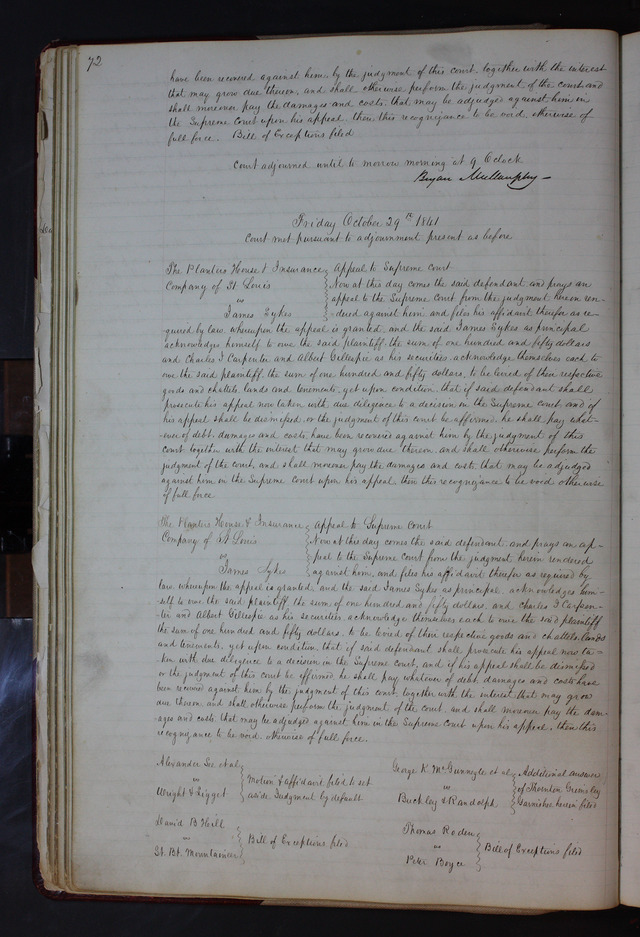 72
have been recovered against him, by the judgment of this court, together with the interest
that may grow due thereon, and shall otherwise perform the judgment of the court and
shall moreover pay the damages and costs, that may be adjudged against him in
the Supreme Court upon his appeal, then this recognizance to be void, otherwise of
full force. Bill of Exceptions filed
Court adjourned until to morrow morning at 9 O'clock
Bryan Mullanphy
Friday October 29th 1841
Court met pursuant to adjournment present as before
The Planters House & Insurance Appeal to Supreme Court
Company of St Louis Now at this day comes the said defendant and prays an
vs appeal to the Supreme Court from the judgment herein ren-
James Sykes dered against him and files his affidavit therefor as re-
quired by law, whereupon the appeal is granted, and the said James Sykes as principal
acknowledges himself to owe the said plaintiff the sum of one hundred and fifty dollars
and Charles J Carpenter and Albert Gillespie as his securities, acknowledge themselves each to
owe the said plaintiff, the sum of one hundred and fifty dollars, to be levied of their respective
goods and chattels, lands and tenements, yet upon condition, that if said defendant shall
prosecute his appeal now taken with due diligence to a decision in the Supreme Court, and if
his appeal shall be dismissed or the judgment of this court be affirmed, he shall pay what-
ever of debt, damages and costs, have been recovered against him by the judgment of this
court together with the interest that may grow due thereon, and shall otherwise perform the
judgment of the court, and shall moreover pay the damages and costs that may be adjudged
against him in the Supreme Court upon his appeal then this recognizance to be void otherwise
of full force
The Planters House & Insurance Appeal to Supreme Court
Company of St Louis Now at this day comes the said defendant and prays an ap-
vs peal to the Supreme Court from the judgment herein rendered
James Sykes against him, and files his affidavit therefor as required by
law, whereupon the appeal is granted, and the said James Sykes as principal, acknowledges him-
self to owe the said plaintiff, the sum of one hundred and fifty dollars, and Charles J Carpen-
ter and Albert Gillespie as his securities, acknowledge themselves each to owe the said plaintiff
the sum of one hundred and fifty dollars, to be levied of their respective goods and chattels, lands
and tenements, yet upon condition, that if said defendant shall prosecute his appeal now ta-
ken with due diligence to a decision in the Supreme Court, and if his appeal shall be dismissed
or the judgment of this court be affirmed he shall pay whatever of debt, damages and costs have
been recovered against him by the judgment of this court, together with the interest that may grow
due thereon, and shall otherwise perform the judgment of the court, and shall moreover pay the dam-
ages and costs that may be adjudged against him in the Supreme Court upon his appeal, then this
recognizance to be void, otherwise of full force.
Alexander Lee et al
vs Motion & affidavit filed to set
Wright & Tigget aside Judgment by default
George K McGunnegle et al Additional answer
vs of Thornton Grimsley
Buckley & Randolph Garnishee herein filed
David B Hill
vs Bill of Exceptions filed
St. Bt. Mountaineer
Thomas Roden
vs Bill of Exceptions filed
Peter Boyce